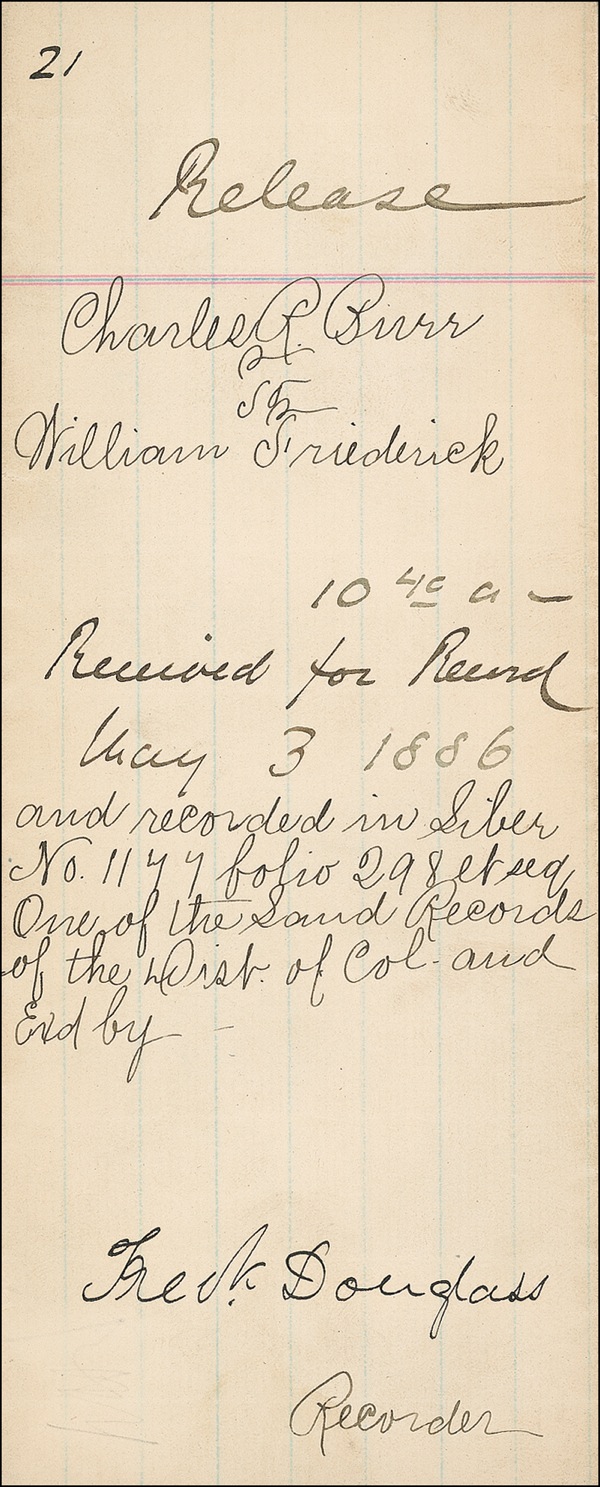 21
Release
Charles R. Burr
to
William Friederick
10 40 a
Received for Record
May 3 1886
and recorded in Liber
No. 1177 folio 298 et seq
One of the Land Records
of the Dist. of Col. and
Exd by
Fredk. Douglass
Recorder